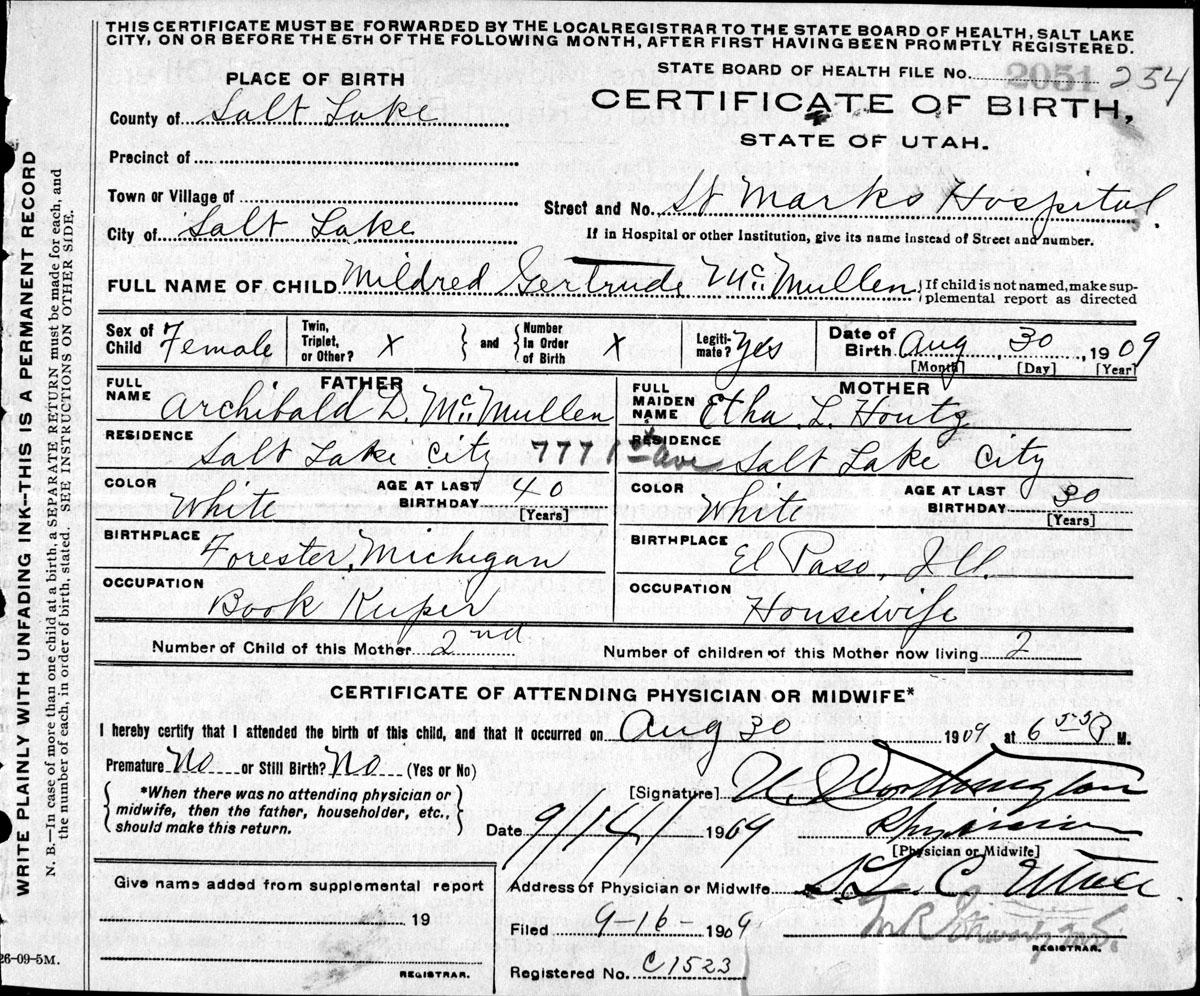 THIS CERTIFICATE MUST BE FORWARDED BY THE LOCAL REGISTRAR TO THE STATE BOARD OF HEALTH, SALT LAKE
CITY, ON OR BEFORE THE 5TH OF THE FOLLOWING MONTH, AFTER FIRST HAVING BEEN PROMPTLY REGISTERED.
STATE BOARD OF HEALTH FILE No. 2051 254
PLACE OF BIRTH
CERTIFICATE OF BIRTH,
STATE OF UTAH.
County of Salt Lake
Precinct of
Town or Village of
Street and No. St Marks Hospital
City of Salt Lake
If in Hospital or other Institution, give its name instead of Street and number.
FULL NAME OF CHILD Mildred Gertrude McMullen
If child is not named, make sup-
plemental report as directed
Sex of Child Female Twin, Triplet, or Other? X and Number In Order of Birth X Legiti-mate? Yes Date of Birth Aug 30, 1909
[Month] [Day] [Year]
FATHER MOTHER
FULL NAME Archibald D. McMullen FULL MAIDEN NAME Etha L. Houtz
RESIDENCE Salt Lake City 777 1st Ave RESIDENCE Salt Lake City
COLOR White AGE AT LAST BIRTHDAY 40 [Years] COLOR White AGE AT LAST BIRTHDAY 30 [Years]
BIRTHPLACE Forester, Michigan BIRTHPLACE El Paso, Ill.
OCCUPATION Book Keeper OCCUPATION Housewife
Number of Child of this Mother 2nd Number of children of this Mother now living 2
CERTIFICATE OF ATTENDING PHYSICIAN OR MIDWIFE*
I hereby certify that I attended the birth of this child, and that it occurred on Aug 30 1909 at 6 55 P M.
Premature No or Still Birth? No (Yes or No)
*When there was no attending physician or
midwife, then the father, householder, etc.,
should make this return.
[Signature] U. Worthington
Date 9/14/ 1909 Physician
[Physician or Midwife]
Give name added from supplemental report
Address of Physician or Midwife S. L. C Utah
19
Filed 9-16- 1909
REGISTRAR.
REGISTRAR.
Registered No. C1523
26-09-5M.
WRITE PLAINLY WITH UNFADING INK--THIS IS A PERMANENT RECORD
N. B.—In case of more than one child at a birth, a SEPARATE RETURN must be made for each, and
the number of each, in order of birth, stated. SEE INSTRUCTIONS ON OTHER SIDE.